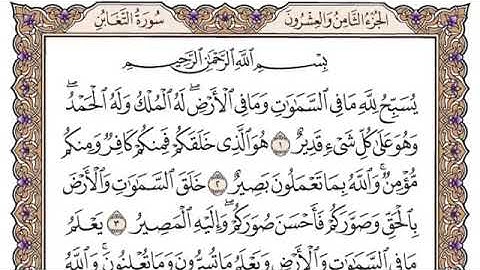 الجزء الثامن والعشرون سورة التغابن
بِسْمِ ٱللَّهِ ٱلرَّحْمَٰنِ ٱلرَّحِيمِ
يُسَبِّحُ لِلَّهِ مَا فِي ٱلسَّمَٰوَٰتِ وَمَا فِي ٱلْأَرْضِۖ لَهُ ٱلْمُلْكُ وَلَهُ ٱلْحَمْدُۖ
وَهُوَ عَلَىٰ كُلِّ شَيْءٖ قَدِيرٌ ١ هُوَ ٱلَّذِي خَلَقَكُمْ فَمِنكُمْ كَافِرٞ وَمِنكُم
مُّؤْمِنٞۚ وَٱللَّهُ بِمَا تَعْمَلُونَ بَصِيرٌ ٢ خَلَقَ ٱلسَّمَٰوَٰتِ وَٱلْأَرْضَ
بِٱلْحَقِّ وَصَوَّرَكُمْ فَأَحْسَنَ صُوَرَكُمْۖ وَإِلَيْهِ ٱلْمَصِيرُ ٣ يَعْلَمُ
مَا فِي ٱلسَّمَٰوَٰتِ وَٱلْأَرْضِ وَيَعْلَمُ مَا تُسِرُّونَ وَمَا تُعْلِنُونَۚ وَٱللَّهُ